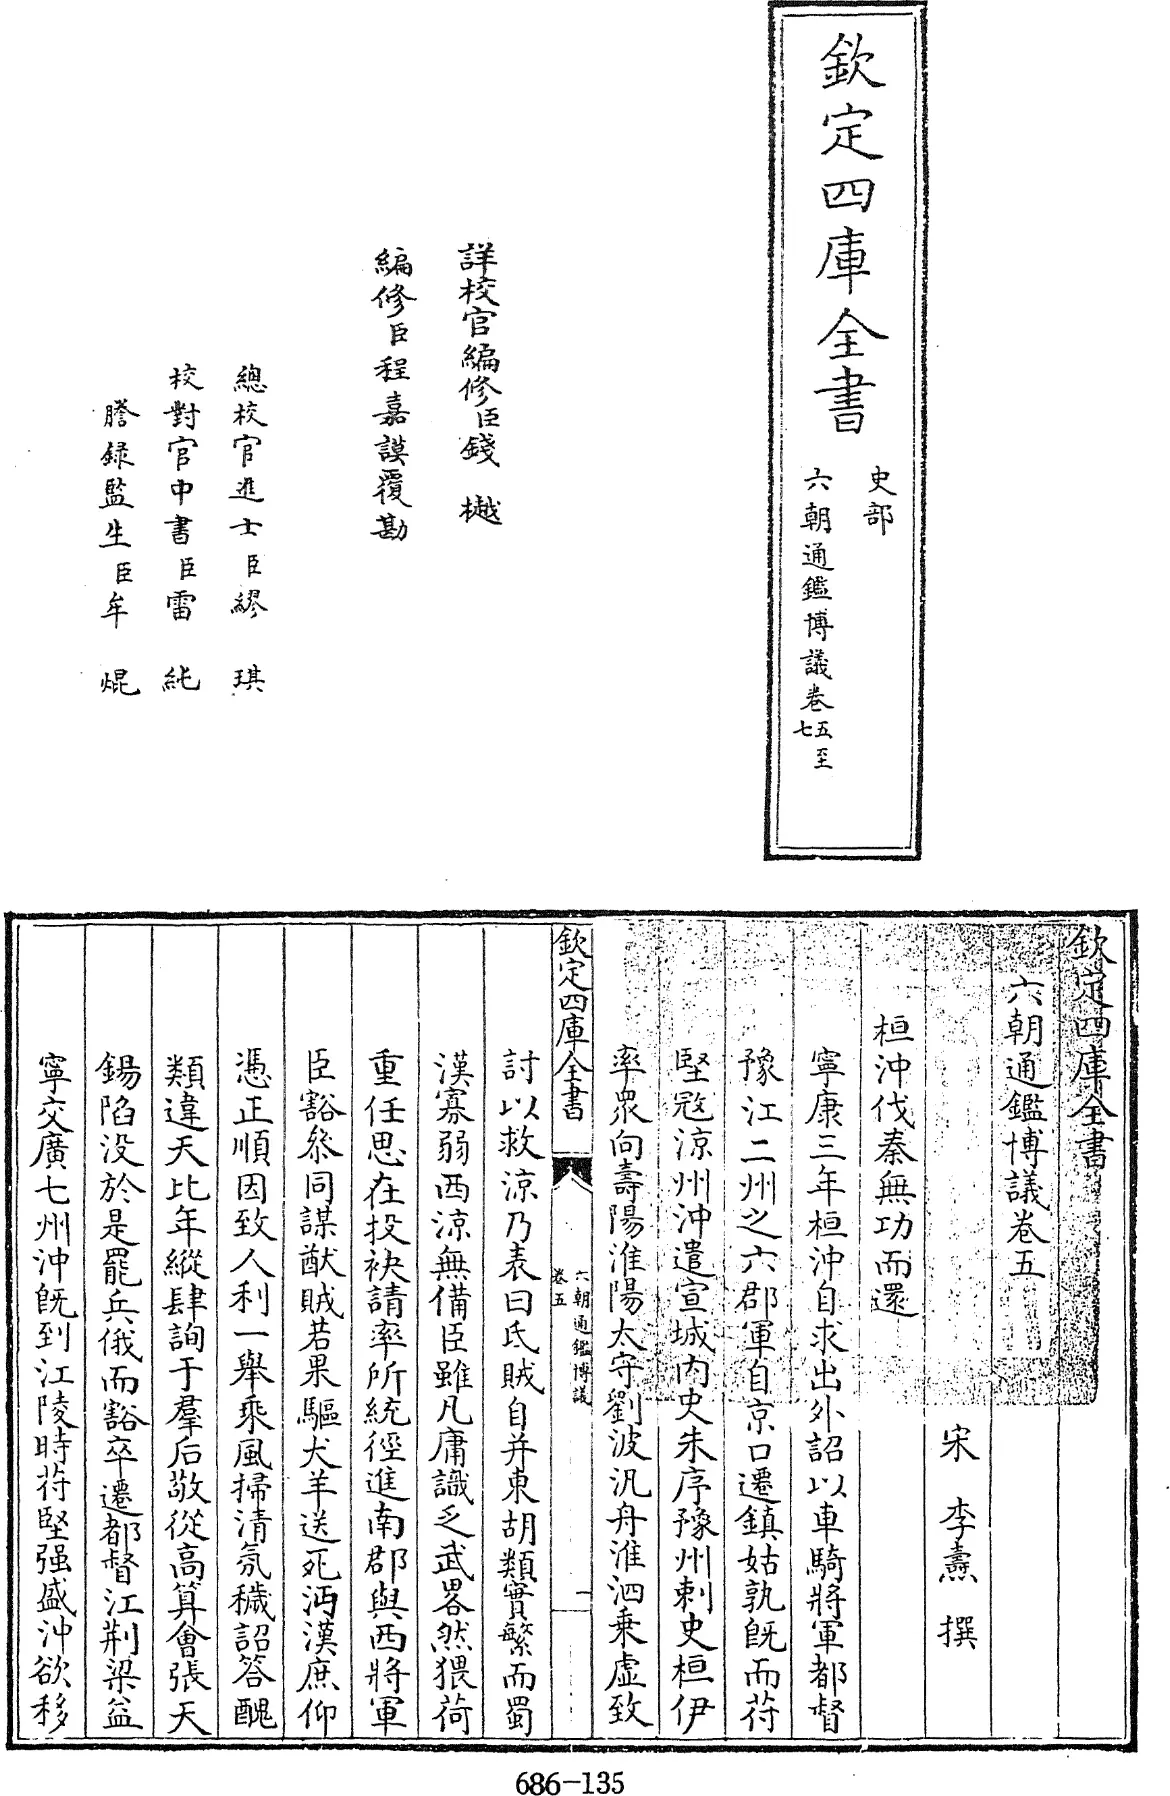 欽定四庫全書
史部
六朝通鑑博議卷五至七
詳校官編修臣錢樾
編修臣程嘉謨覆勘
總校官進士臣繆琪
校對官中書臣雷純
謄録監生臣牟焜
欽定四庫全書
六朝通鑑博議卷五
宋李燾撰
桓沖伐秦無功而還
寧康三年桓沖自求出外詔以車騎將軍都督
豫江二州之六郡軍自京口遷鎮姑孰旣而苻
堅㓂涼州沖遣宣城内史朱序豫州刺史桓伊
率衆向壽陽淮陽太守劉波汎舟淮泗乗虛致
欽定四庫全書
六朝通鑑博議
卷五
一
討以救涼乃表曰氐賊自并東胡類實繁而蜀
漢寡弱西涼無備臣雖凡庸識乏武畧然猥荷
重任思在投袂請率所統徑進南郡與西將軍
臣豁叅同謀猷賊若果驅犬羊送死沔漢庶仰
憑正順因致人利一舉乘風掃清氛穢詔答醜
類違天比年縱肆詢于羣后敬從高算會張天
鍚陷没於是罷兵俄而豁卒遷都督江荆梁益
寧交廣七州沖旣到江陵時苻堅强盛沖欲移
686-135